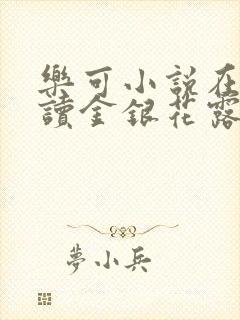 樂可小說在
讀金銀花露
夢小兵